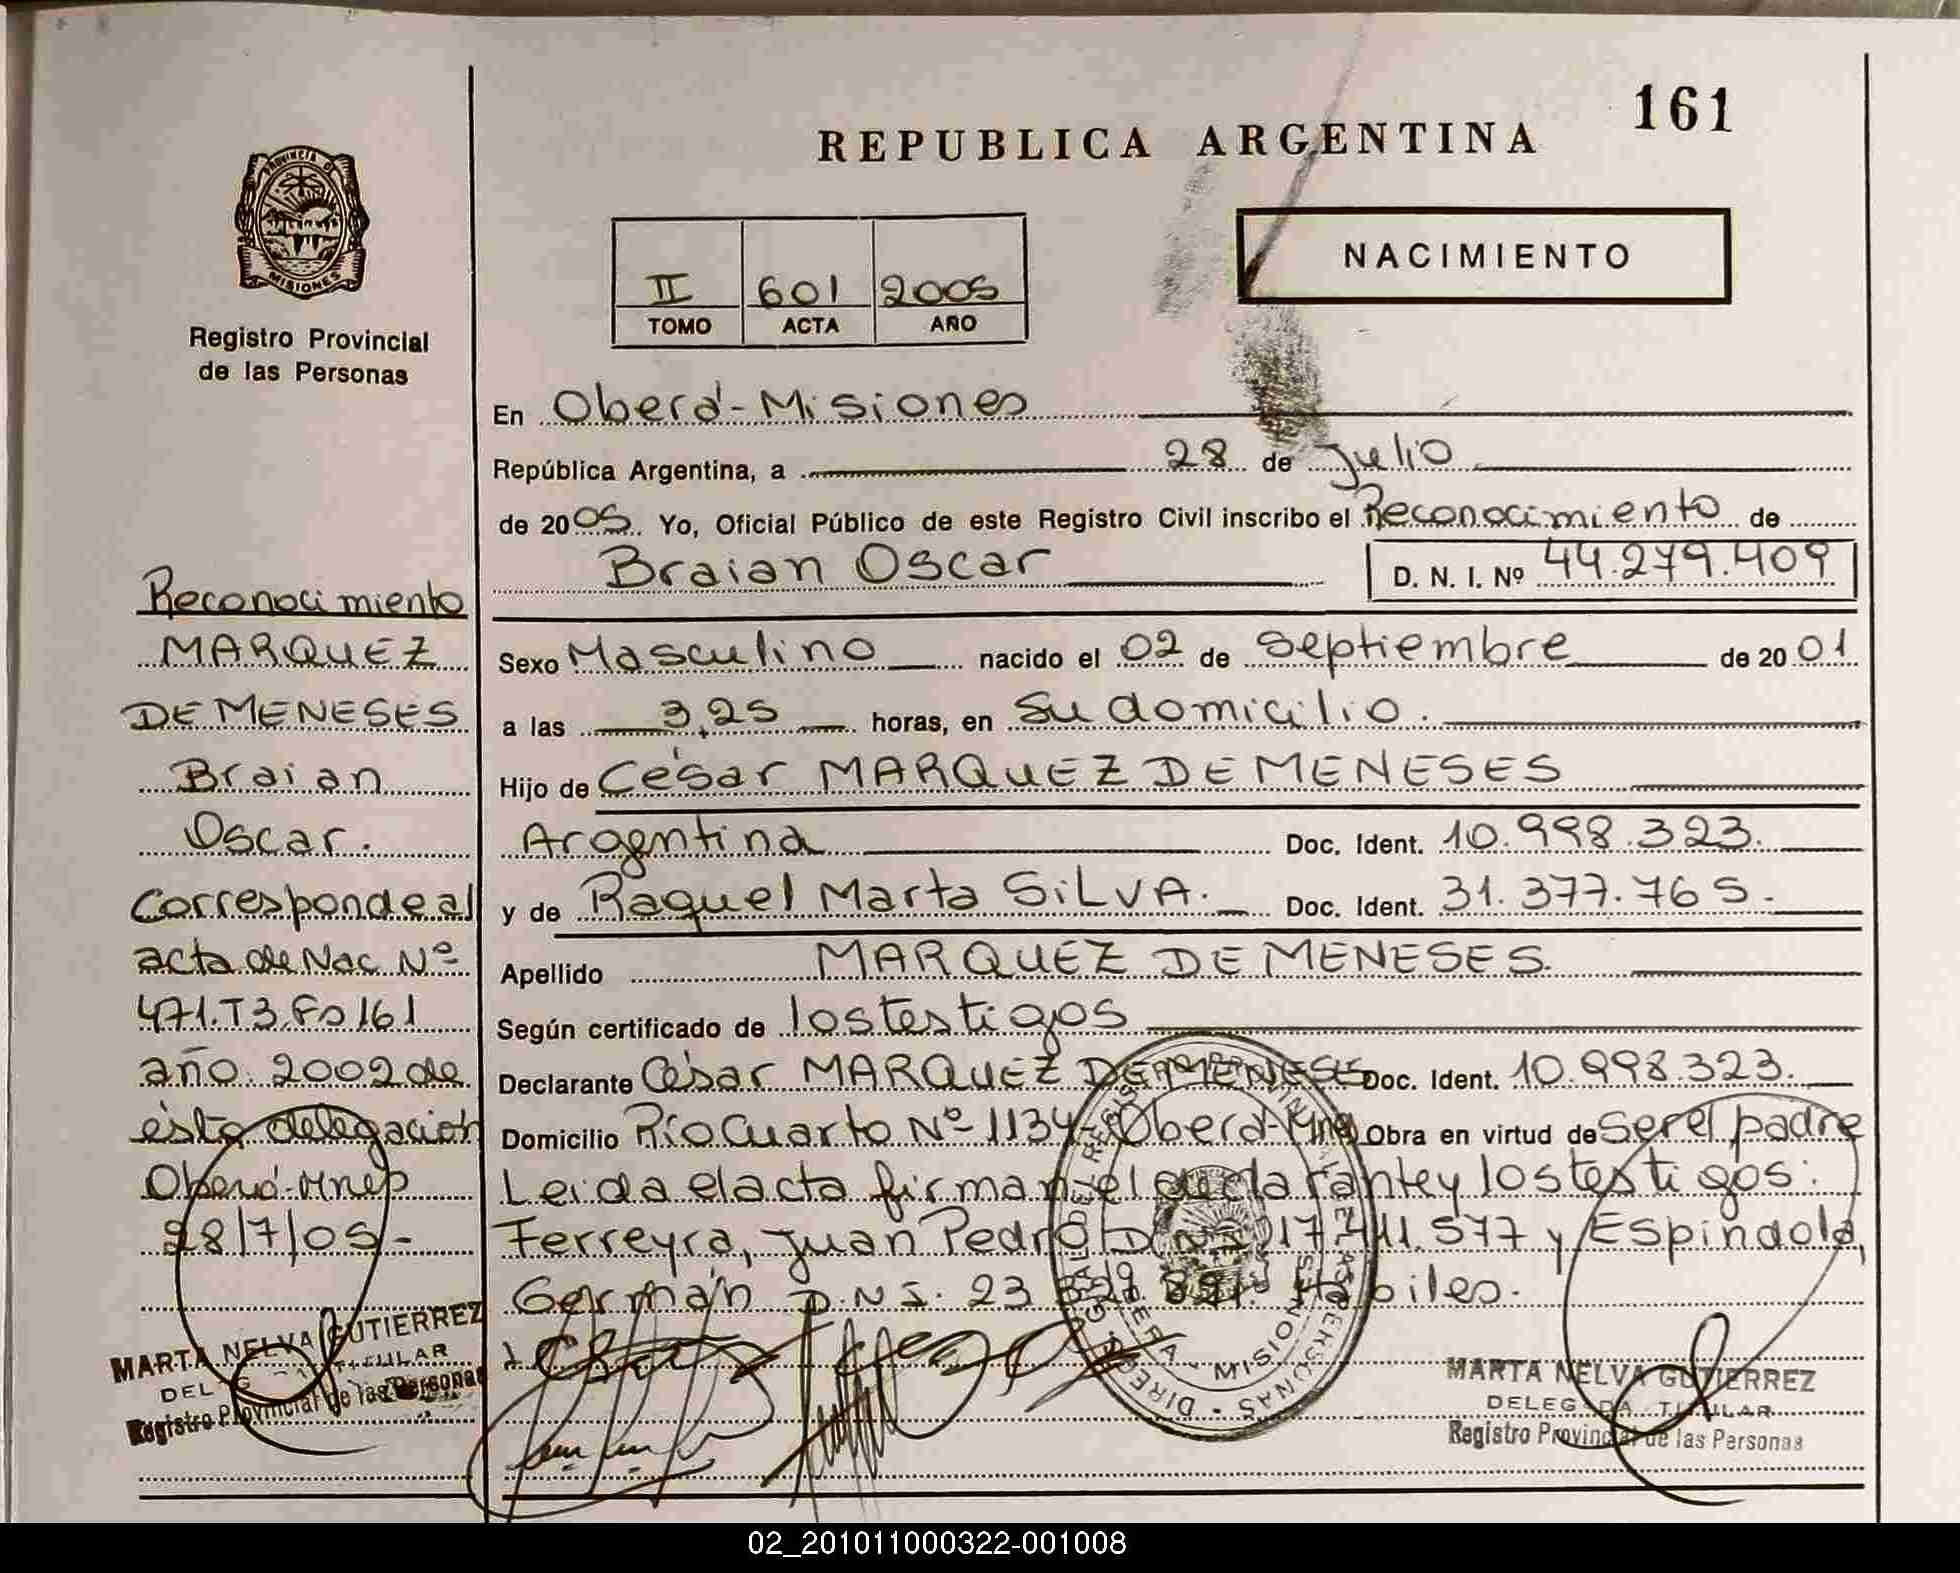 161
REPUBLICA ARGENTINA
NACIMIENTO
PROVINCIA DE
MISIONES
Registro Provincial
de las Personas
II 601 2005
TOMO ACTA AÑO
En Oberá-Misiones
República Argentina, a 28 de Julio
de 2005. Yo, Oficial Público de este Registro Civil inscribo el Reconocimiento de
Braian Oscar D. N. I. Nº 44.279.409
Sexo Masculino nacido el 02 de Septiembre de 2001
a las 3,25 horas, en Su domicilio.
Hijo de César MARQUEZ DE MENESES
Argentina Doc. Ident. 10.998.323.
y de Raquel Marta SILVA. Doc. Ident. 31.377.765.
Apellido MARQUEZ DE MENESES.
Según certificado de los testigos
Declarante César MARQUEZ DE MENESES Doc. Ident. 10.998.323.
Domicilio Río Cuarto Nº 1134-Oberá-Mnes Obra en virtud de Ser el padre
Leida el acta firman el declarante y los testigos:
Ferreyra, Juan Pedro D.N.I. 17.411.577 y Espindola,
Germán D.N.I. 23 Habiles.
MARTA NELVA GUTIERREZ
DELEGADA TITULAR
Registro Provincial de las Personas
Reconocimiento
MARQUEZ
DE MENESES
Braian
Oscar.
Corresponde al
acta de Nac. Nº
471.T3.Fo 161
año 2002 de
ésta delegación
Oberá-Mnes
28/7/05-
MARTA NELVA GUTIERREZ
DELEGADA TITULAR
Registro Provincial de las Personas
MISIONES
02_201011000322-001008